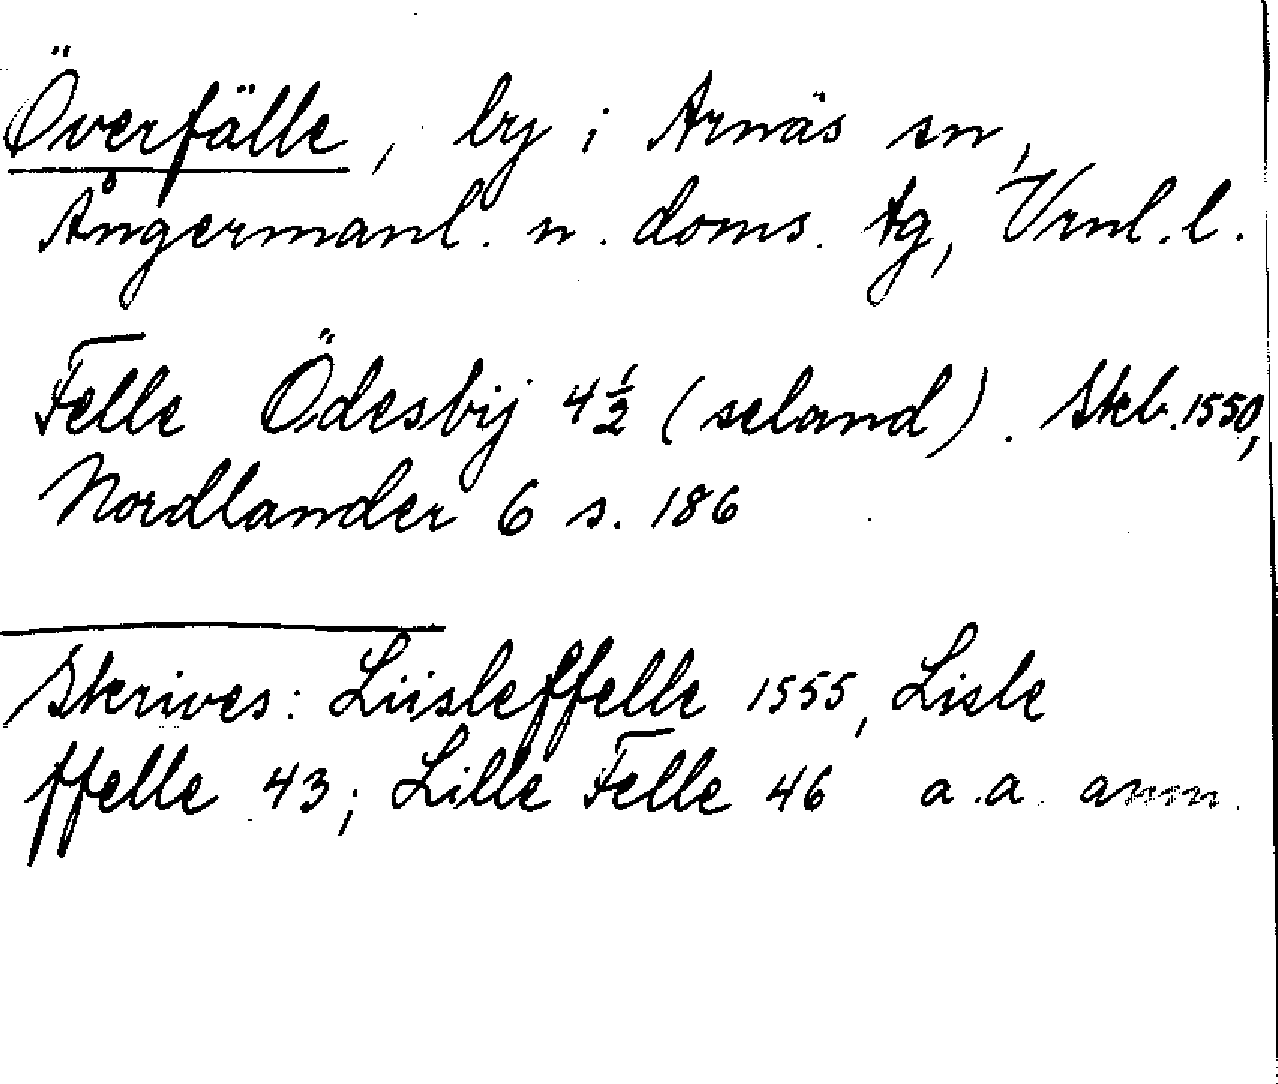 Överfälle, by i Arnäs sn,
Ångermanl. n. doms. tg, Vrnl. l.
Felle Ödesbij 4½ (seland). Skb. 1550,
Nordlander 6 s. 186
Skrives: Liisleffelle 1555, Lisle
ffelle 43; Lille Felle 46 a. a. anm.